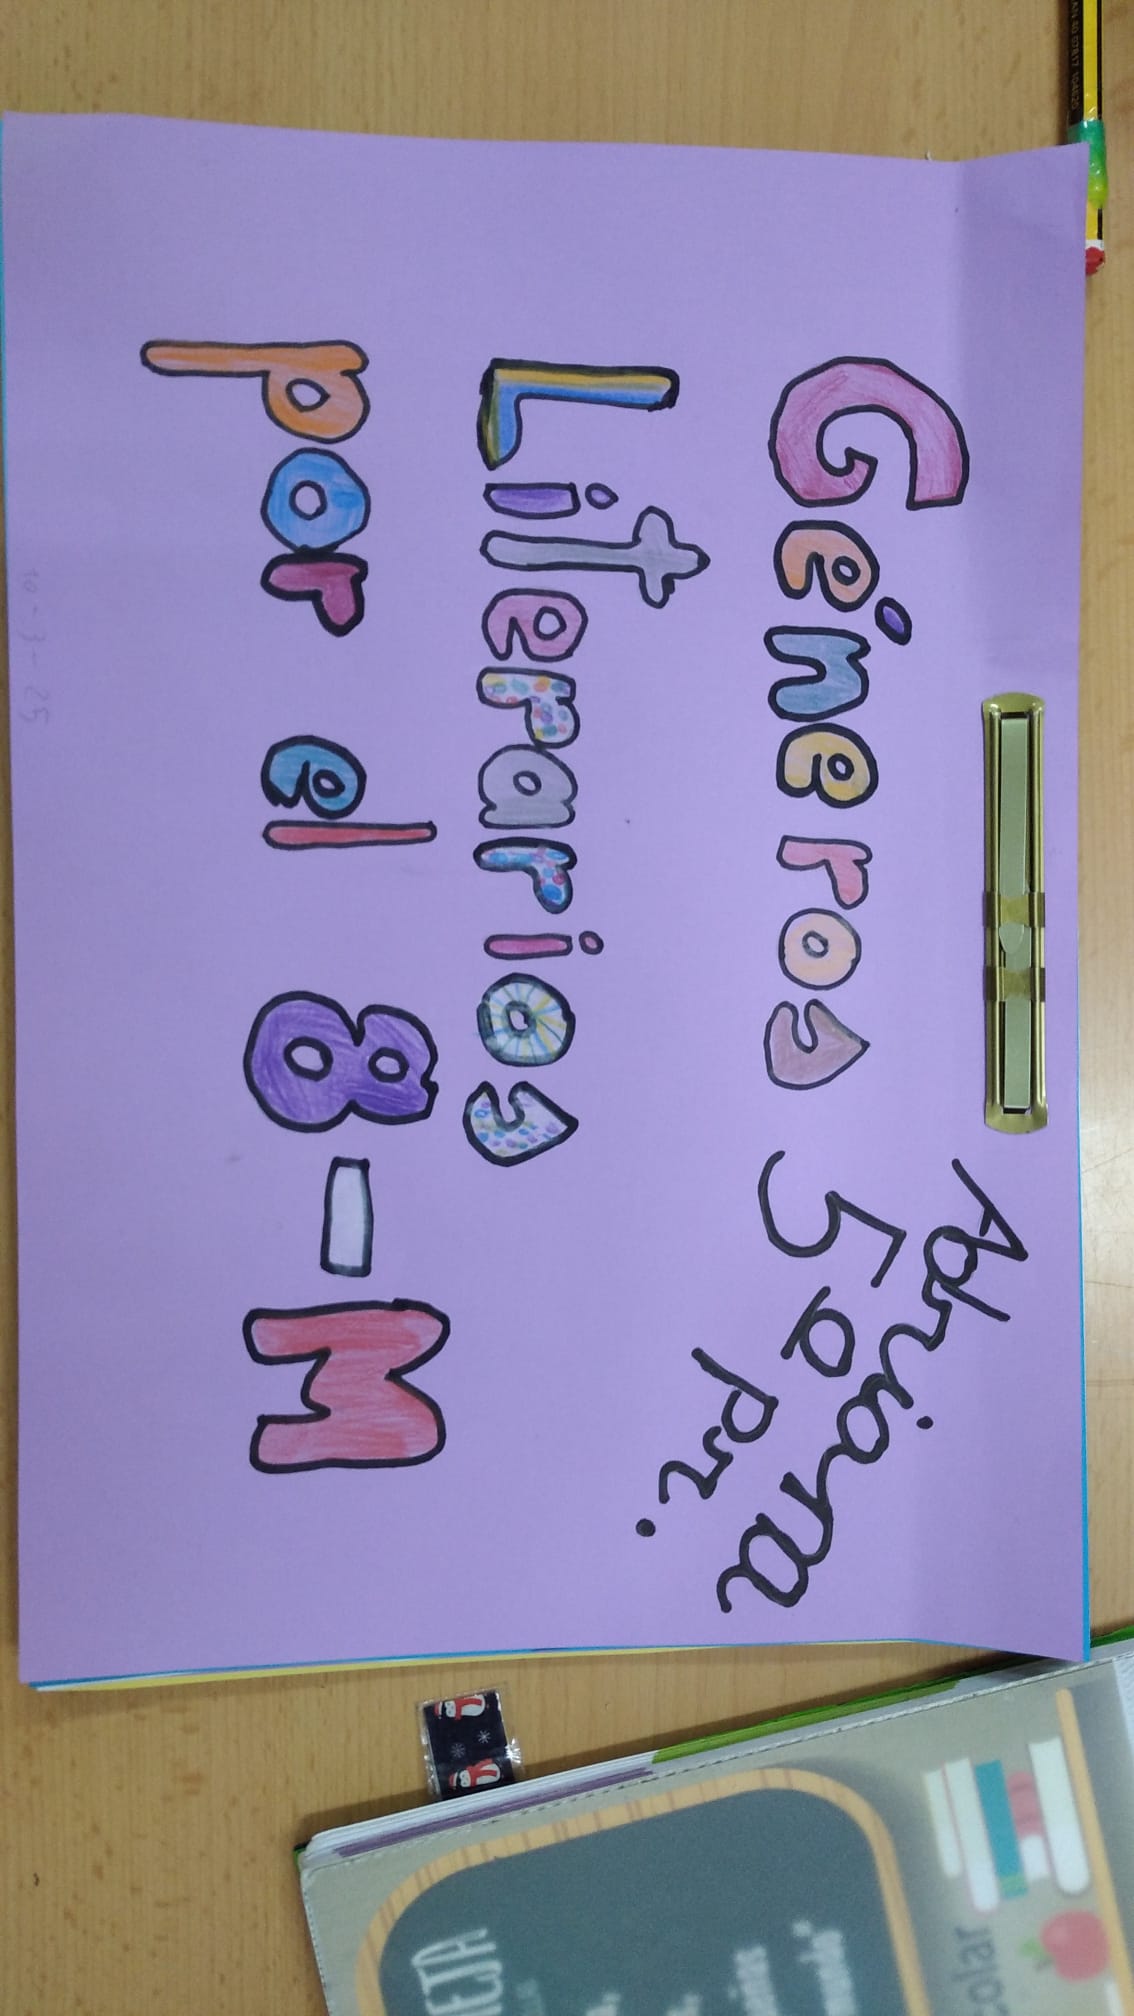 Géneros
Literarios
por el 8-M
Adriana
5 a
pr.
10-3-25